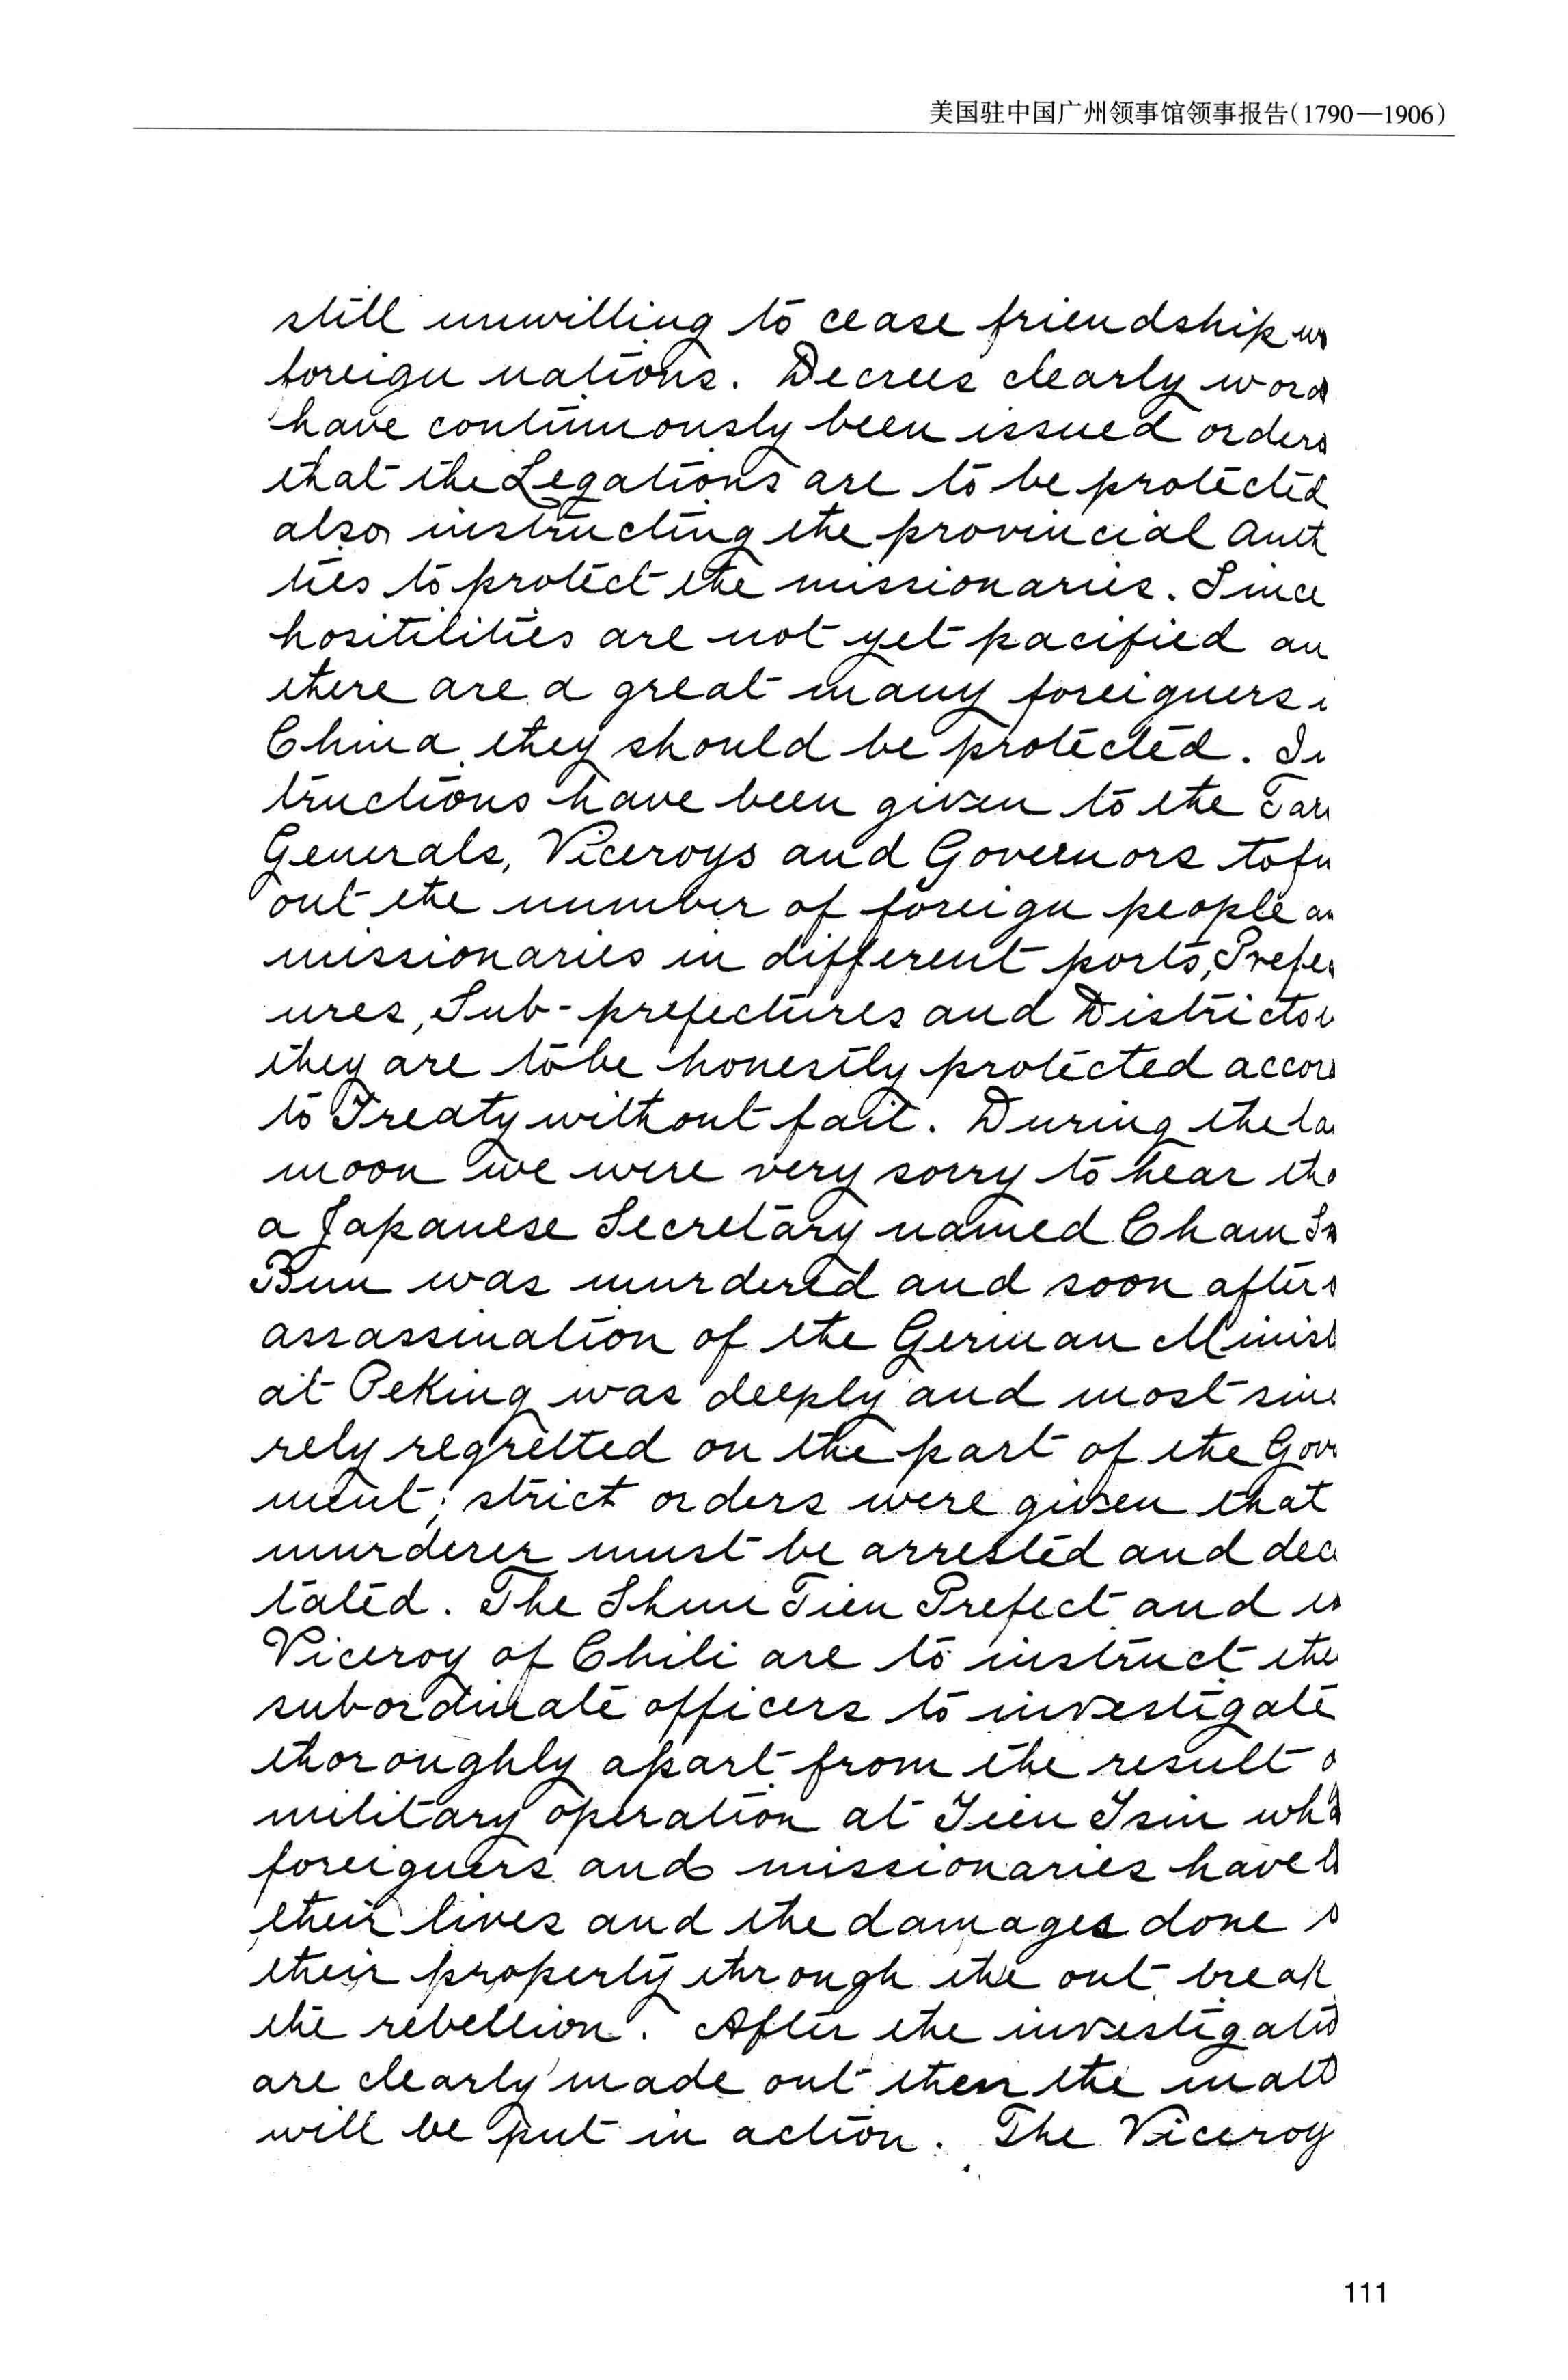 美国驻中国广州领事馆领事报告(1790—1906)
still unwilling to cease friendship w
foreign nations. Decrees clearly word
have continuously been issued orders
that the Legations are to be protected
also instructing the provincial Auth
ties to protect the missionaries. Since
hositilities are not yet pacified an
there are a great many foreigners i
China they should be protected. In
tructions have been given to the Tar
Generals, Viceroys and Governors to fu
out the number of foreign people an
missionaries in different ports, Prefec
ures, Sub-prefectures and Districts
they are to be honestly protected accor
to Treaty without fail. During the la
moon we were very sorry to hear tha
a Japanese Secretary named Cham
Bun was murdered and soon after
assassination of the German Minist
at Peking was deeply and most sinc
rely regretted on the part of the Gov
ment; strict orders were given that
murderer must be arrested and dec
tated. The Shun Tien Prefect and
Viceroy of Chili are to instruct the
subordinate officers to investigate
thoroughly apart from the result o
military operation at Tien Tsin wh
foreigners and missionaries have
their lives and the damages done
their property through the out break
the rebellion. After the investigatio
are clearly made out then the matt
will be put in action. The Viceroy
111